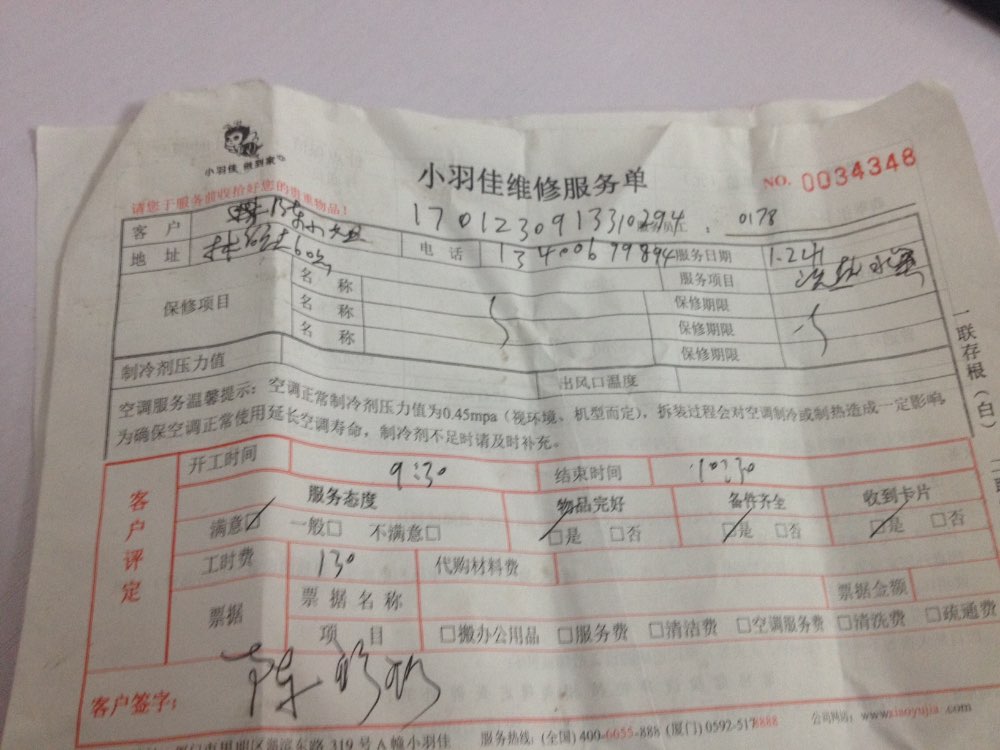 小羽佳 做到家
小羽佳维修服务单
NO. 0034348
请您于服务前收拾好您的贵重物品!
1701230913310294 : 0178
客户 陈小姐
地址 电话 13400679894 服务日期 1.24
保修项目 名称 服务项目 洗热水器
名称 保修期限
名称 保修期限
保修期限
制冷剂压力值 出风口温度
空调服务温馨提示:空调正常制冷剂压力值为0.45mpa(视环境、机型而定),拆装过程会对空调制冷或制热造成一定影响,
为确保空调正常使用延长空调寿命,制冷剂不足时请及时补充。
一联存根(白)
客户评定
开工时间 9:30 结束时间 10:30
服务态度 物品完好 备件齐全 收到卡片
满意☑ 一般□ 不满意□ ☑是 □否 ☑是 □否 ☑是 □否
工时费 130 代购材料费
票据 票据名称 票据金额
项目 □搬办公用品 □服务费 □清洁费 □空调服务费 □清洗费 □疏通费
客户签字: 陈
湖滨东路 319 号 A 幢小羽佳 服务热线:(全国) 400-6655-888 (厦门) 0592-5178888 公司网站: www.xiaoyujia.com